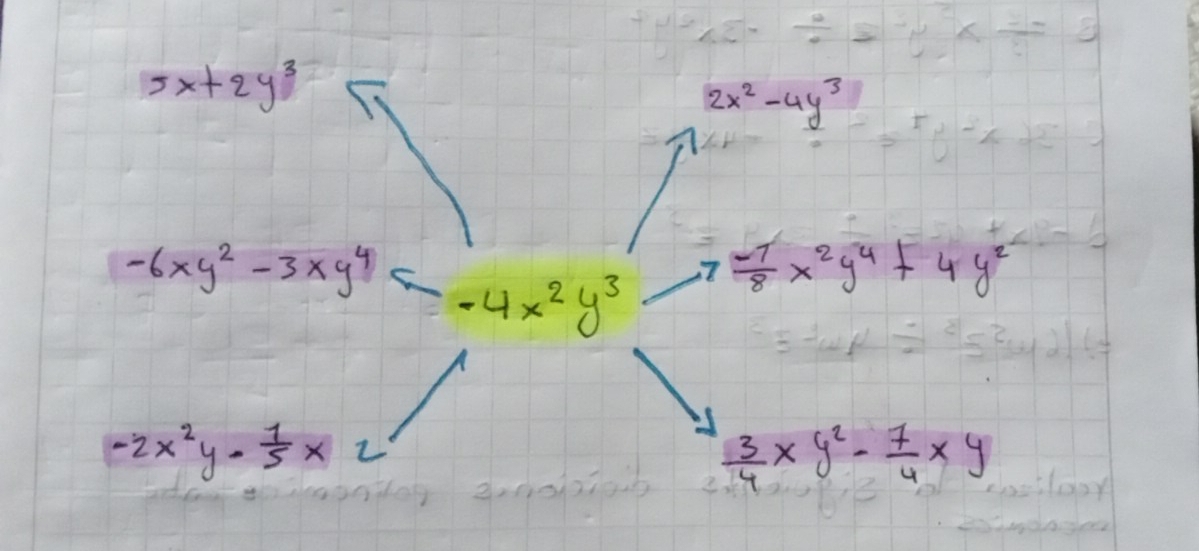 5x+2y³
2x² -4y³
-6xy² -3xy⁴
-4x²y³
-7/8 x²y⁴ + 4y²
-2x²y - 1/5 x
3/4 xy² - 7/4 xy